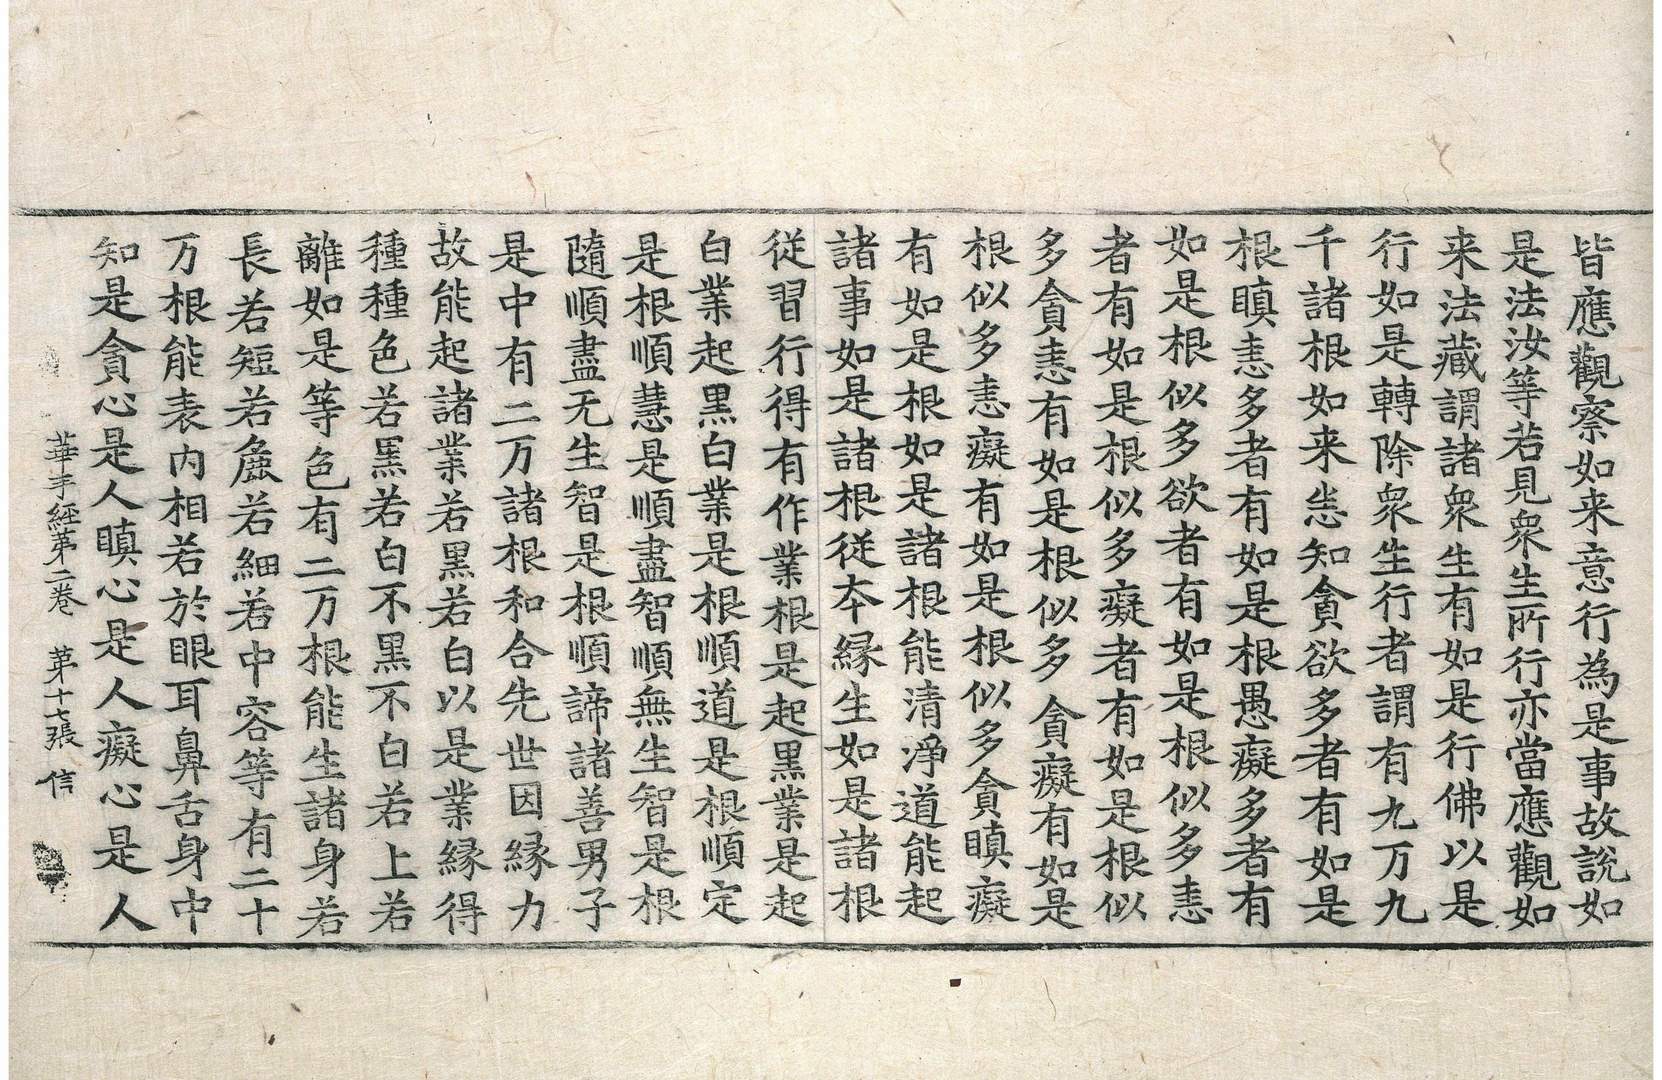 皆應觀察如来意行為是事故說如
是法汝等若見衆生所行亦當應觀如
来法藏謂諸衆生有如是行佛以是
行如是轉除衆生行者謂有九万九
千諸根如来悉知貪欲多者有如是
根瞋恚多者有如是根愚癡多者有
如是根似多欲者有如是根似多恚
者有如是根似多癡者有如是根似
多貪恚有如是根似多貪癡有如是
根似多恚癡有如是根似多貪瞋癡
有如是根如是諸根能清淨道能起
諸事如是諸根從夲縁生如是諸根
從習行得有作業根是起黒業是起
白業起黒白業是根順道是根順定
是根順慧是順盡智順無生智是根
隨順盡无生智是根順諦諸善男子
是中有二万諸根和合先世因縁力
故能起諸業若黒若白以是業縁得
種種色若黒若白不黒不白若上若
離如是等色有二万根能生諸身若
長若短若麁若細若中容等有二十
万根能表内相若於眼耳鼻舌身中
知是貪心是人瞋心是人癡心是人
華手經苐二卷　苐十七張　信